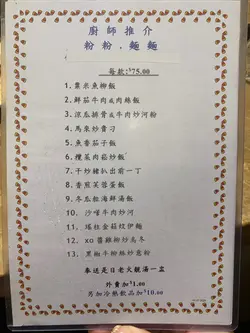 廚師推介
粉粉.麵麵
每款:$75.00
1. 粟米魚柳飯
2. 鮮茄牛肉或肉絲飯
3. 涼瓜排骨或牛肉炒河粉
4. 馬來炒貴刁
5. 魚香茄子飯
6. 欖菜肉菘炒飯
7. 干炒豬扒出前一丁
8. 香煎芙蓉蛋飯
9. 冬瓜粒海鮮湯飯
10. 沙嗲牛肉炒河
11. 瑤柱金菇炆伊麵
12. XO醬雞柳炒烏冬
13. 黑椒牛柳絲炒意粉
奉送是日老火靚湯一盅
外賣加$1.00
另加冷熱飲品加$10.00